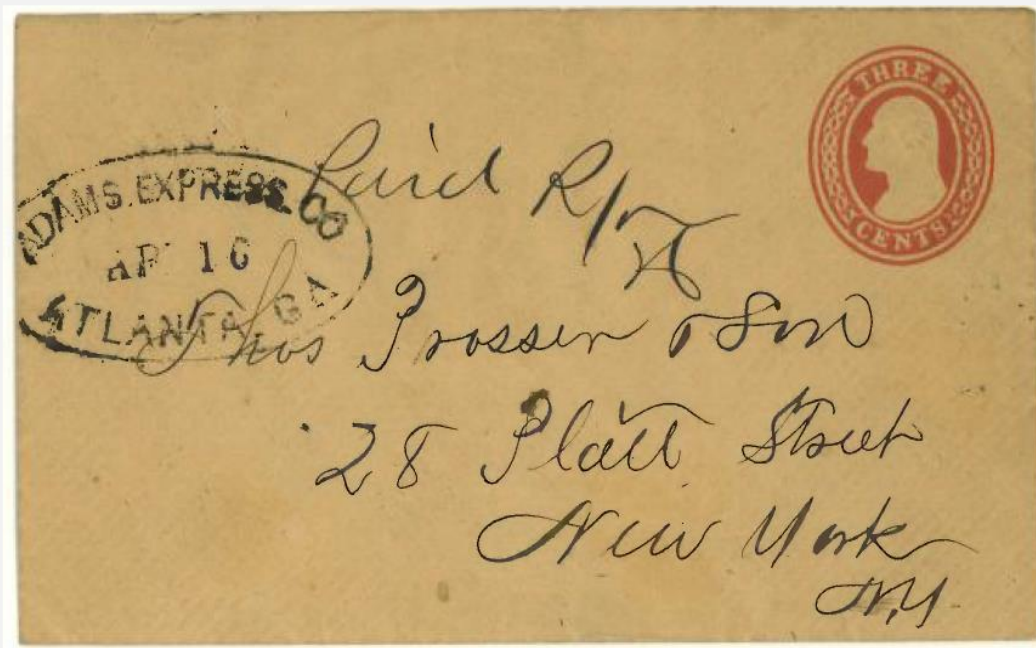 THREE
CENTS
ADAMS EXPRESS CO
AP 16
ATLANTA GA
Paid
Thos Prosser & Son
28 Platt Street
New York
N.Y